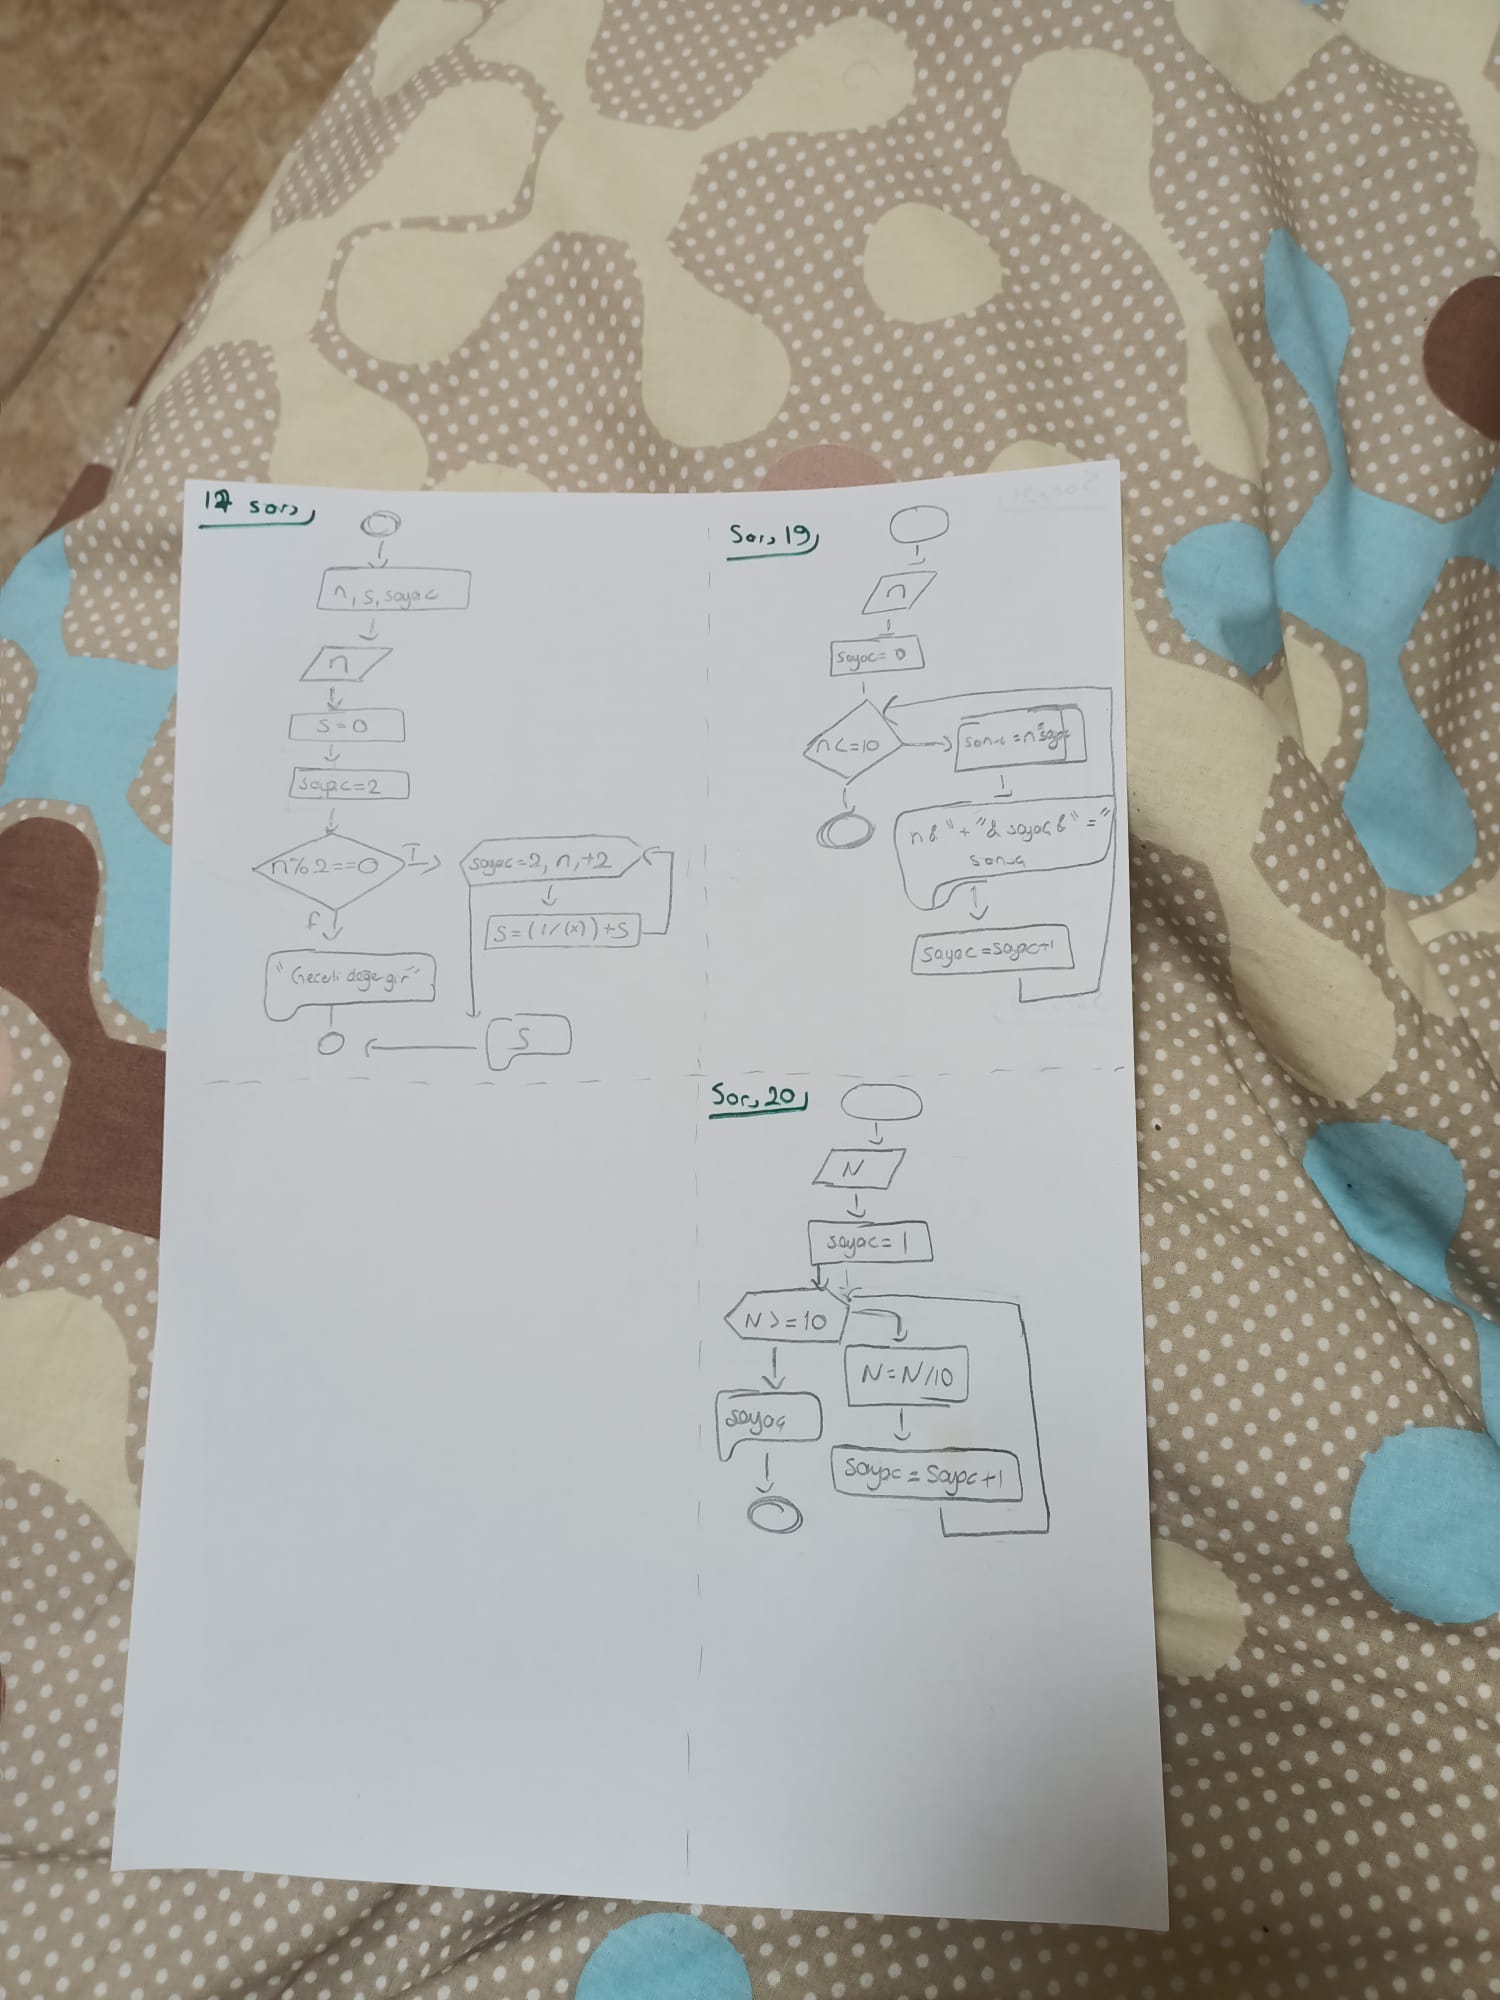 17 soru
n, s, sayac
n
s=0
sayac=2
n%2==0
T
sayac=2, n, +2
s=(1/(x))+s
f
"Gecerli değer gir"
S
Soru 19
n
sayac= 0
n<=10
sonuc=n*sayac
n & "+" & sayaç & "="
sonuç
sayac=sayac+1
Soru 20
N
sayac= 1
N>=10
N=N/10
sayaç
sayac=sayac+1